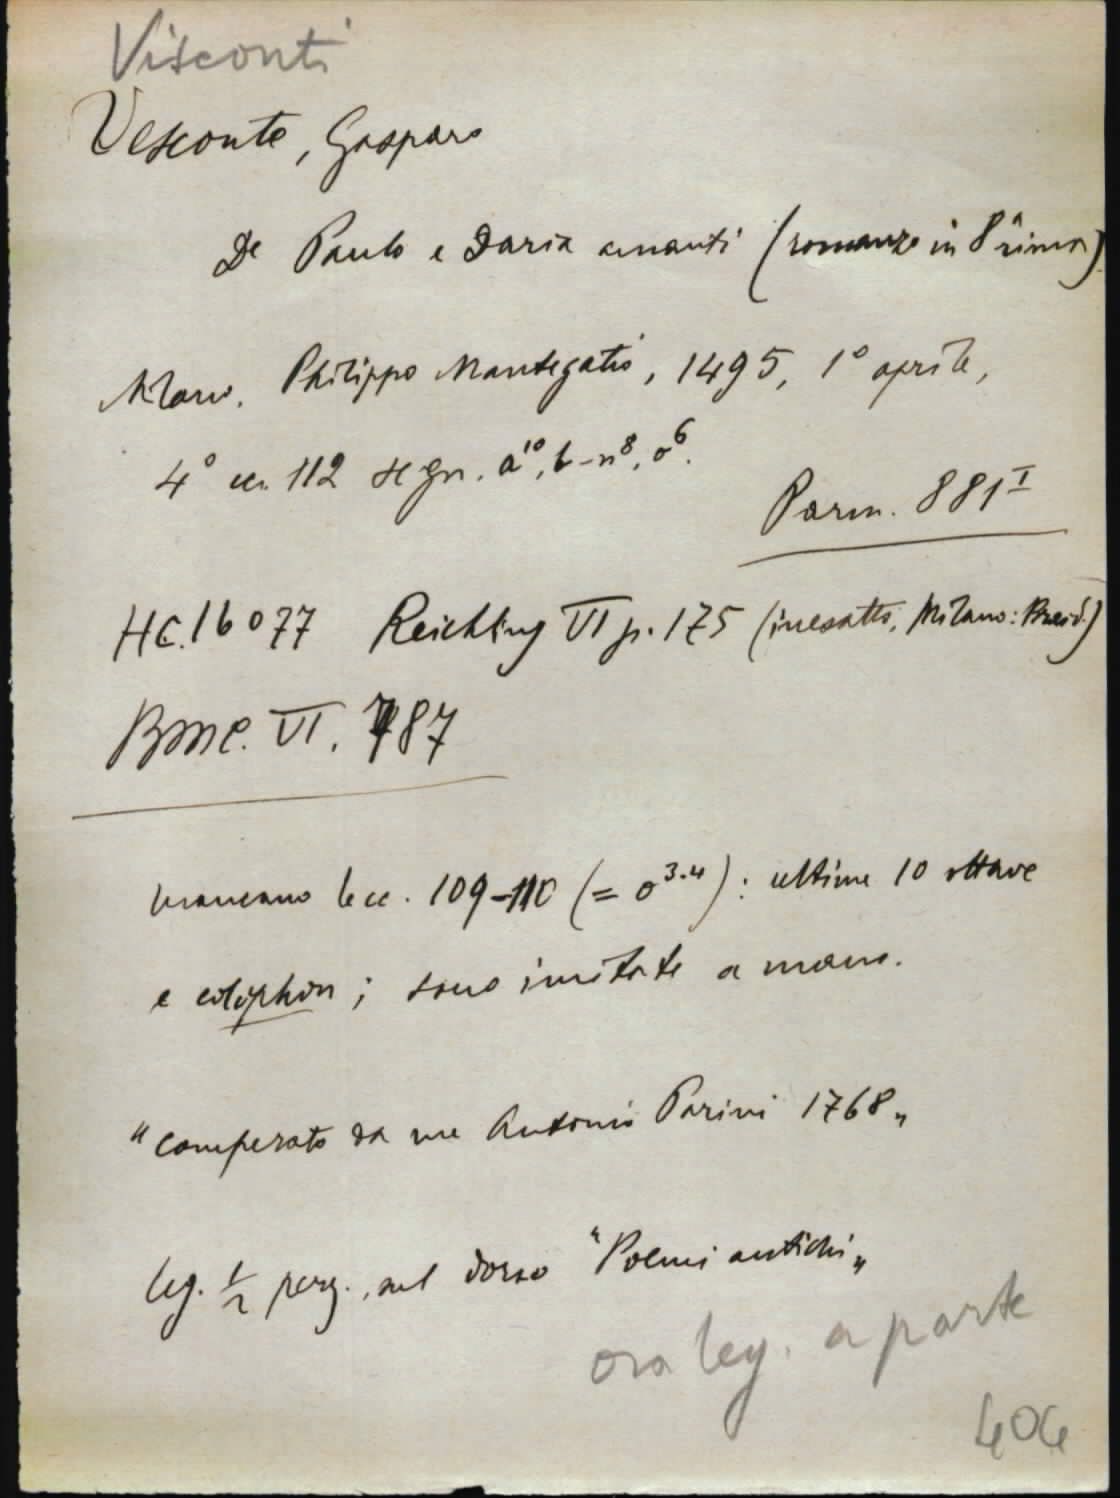 Visconti
Vesconte, Gasparo
De Paulo e Daria amanti (romanzo in 8ª rima)
Milano. Philippo Mantegatio, 1495, 1º aprile,
4º cc. 112 segn. a¹⁰, b-n⁸, o⁶.
Parm. 881ᴵ
HC. 16077 Reichling VI p. 175 (inesatto, Milano: Braid.)
BMC. VI. 787
mancano le cc. 109-110 (= o³·⁴): ultime 10 ottave
e colophon; sono imitate a mano.
"comperato da me Antonio Parini 1768„
leg. ½ perg., sul dorso "Poemi antichi„
ora leg. a parte
404